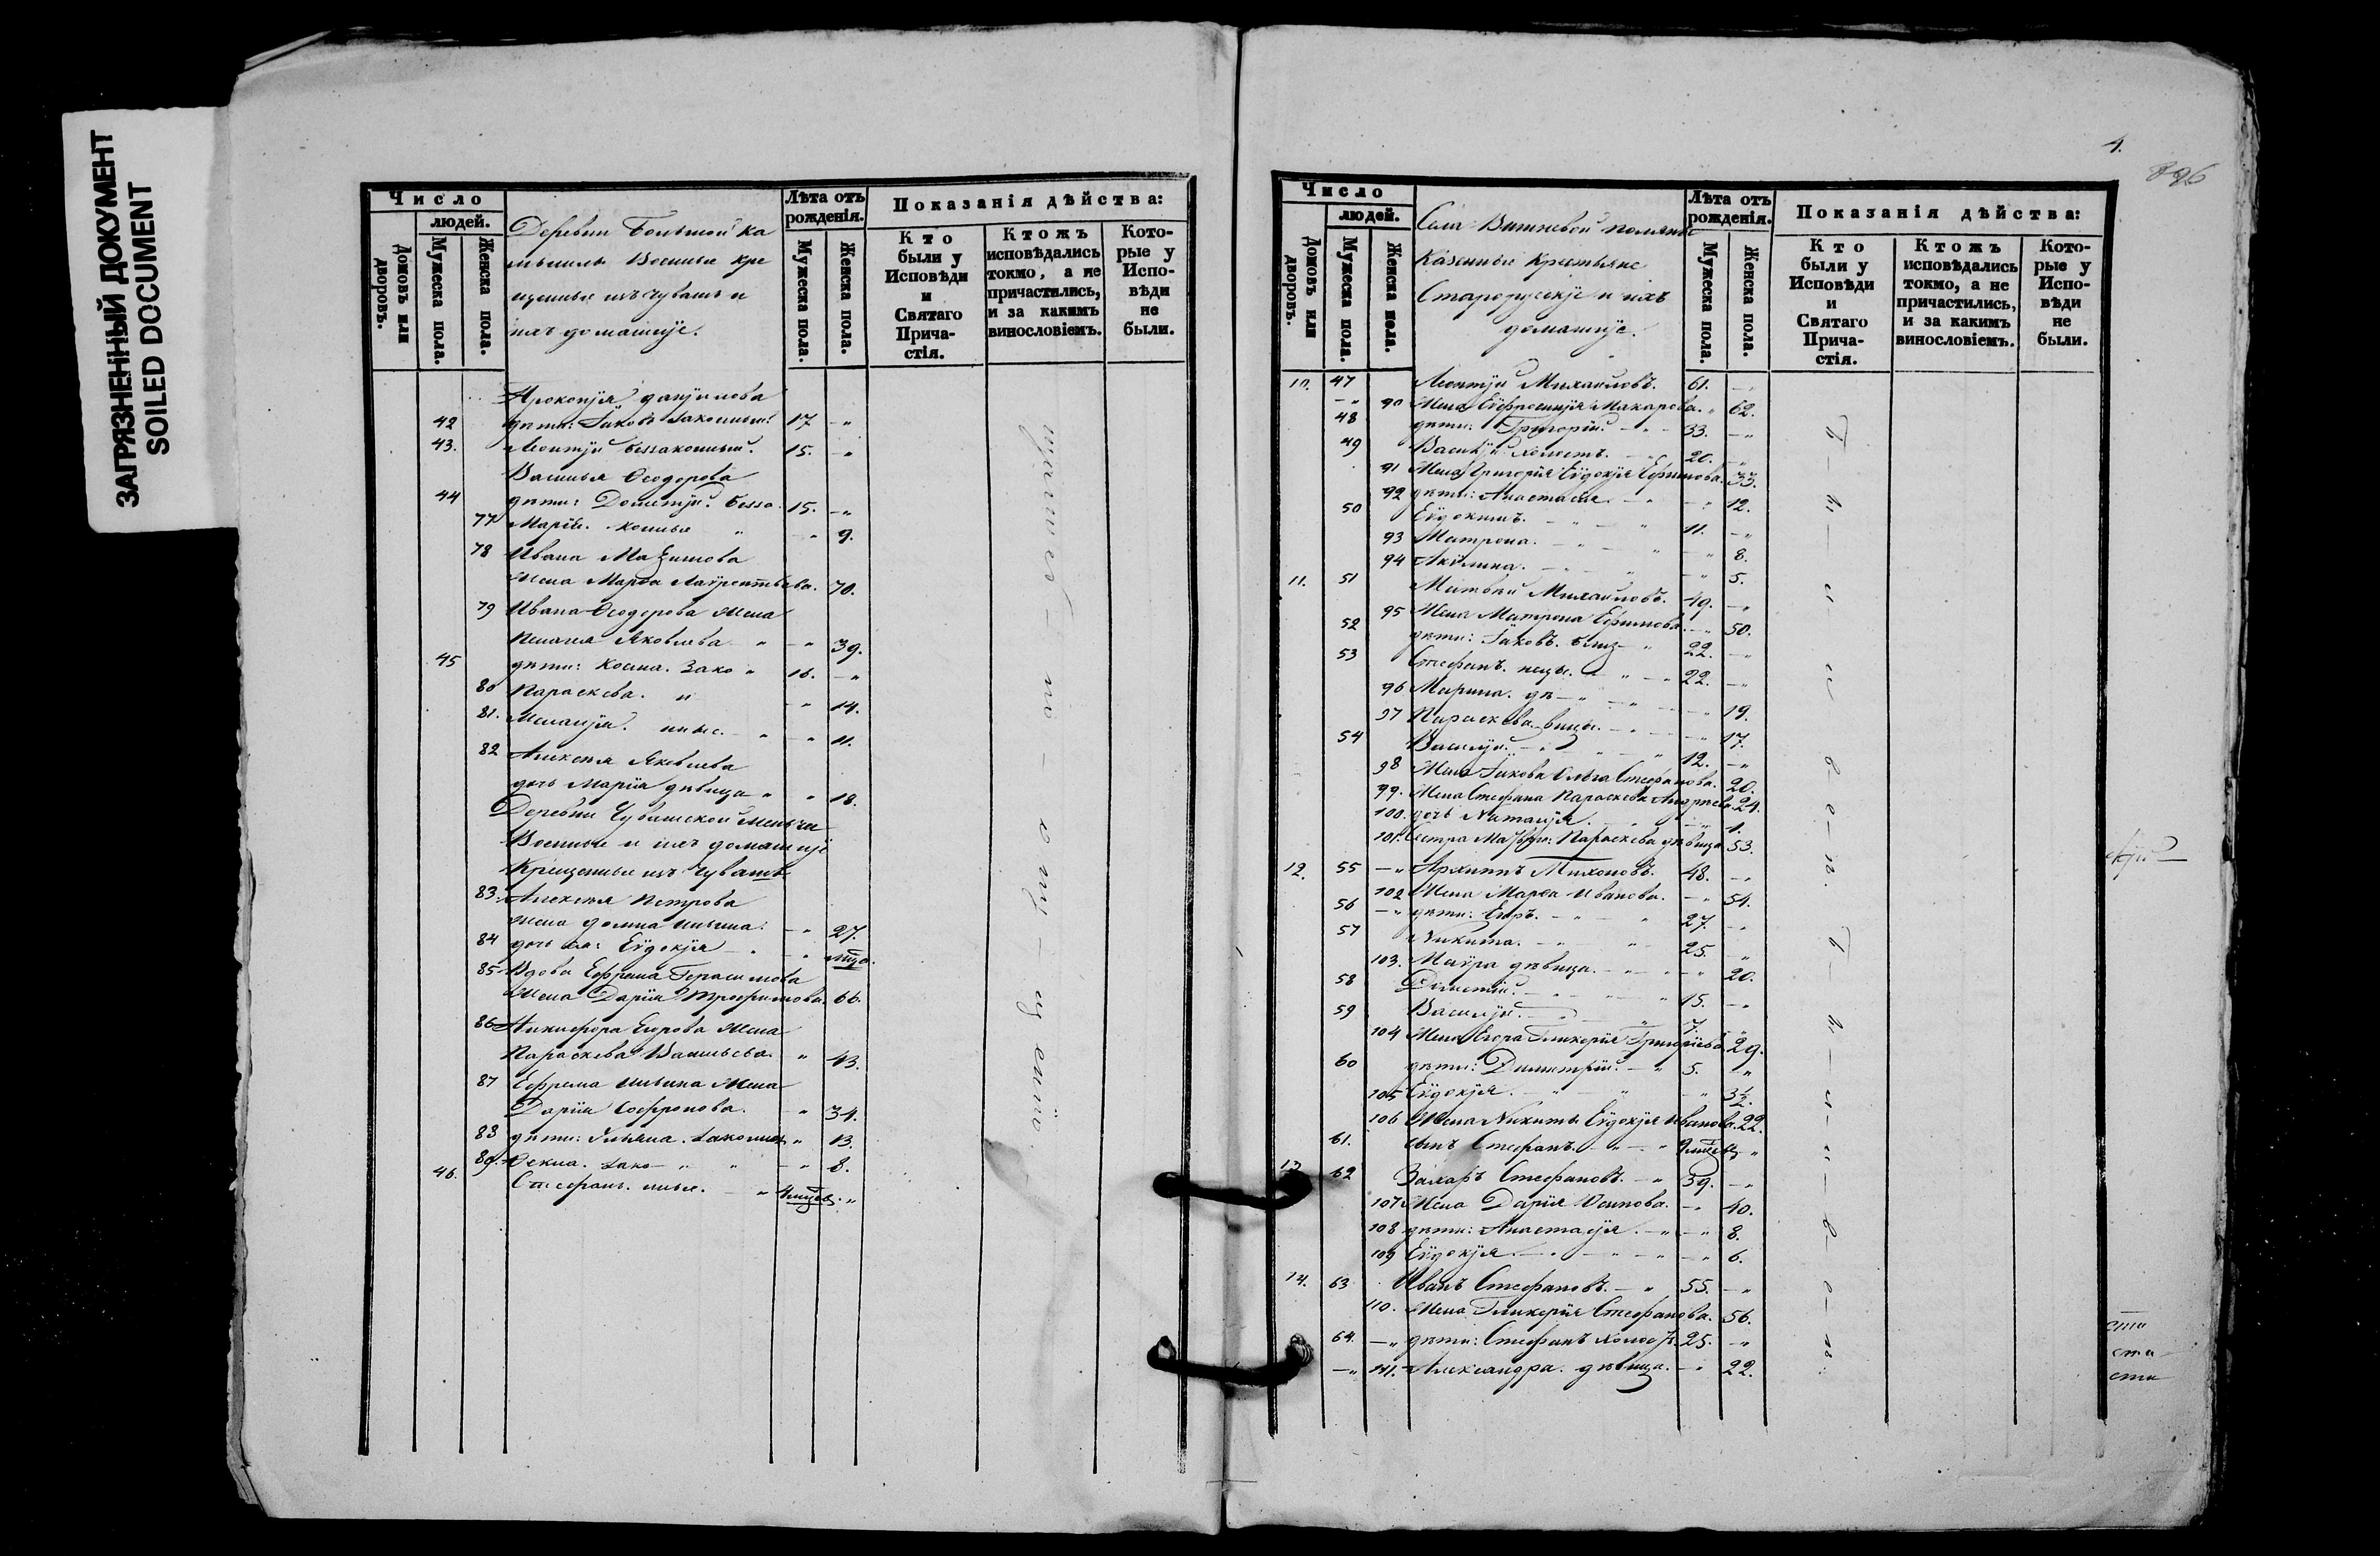 ЗАГРЯЗНЕННЫЙ ДОКУМЕНТ
SOILED DOCUMENT
Число
людей.
Домовъ или дворовъ.
Мужеска пола.
Женска пола.
Деревни Большой Ка
мышлы Военные кре
щеные изъ чувашъ и
ихъ домашніе.
Лѣта отъ рожденія.
Мужеска пола.
Женска пола.
Показанія дѣйства:
Кто были у Исповѣди и Святаго Прича-стія.
Ктожъ исповѣдались токмо, а не причастились, и за какимъ винословіемъ.
Кото-рые у Испо-вѣди не были.
Прокопія Данилова
42 дѣти: Іаковъ законный 17 - "
43. Леонтій беззаконный. 15. - "
Василья Ѳеодорова
44 дѣти: Дометій. безза 15. - "
77 Марія. конные " - " 9.
78 Ивана Маѯимова
жена Марѳа Лаѵрентьева. 70.
79 Ивана Ѳеодорова жена
Пелагея Яковлева " - " 39.
45 дѣти: Косма. Зако " 16. - "
80 Параскева. н " 14.
81. Меланія. ные. - " - " 11.
82 Алексѣя Яковлева
дочь Марія дѣвица " " 18.
Деревни Чувашской
Военные и ихъ домашніе
Крещеные изъ Чувашъ
83. Алексѣя Петрова
жена Домна Ильина. - " 27.
84 дочь ея: Еѵдокія - " - "
85 Вдова Ефрема Герасимова
жена Дарія Трофимова. 66.
86 Никифора Егорова жена
Параскева Васильева. " 43.
87 Ефрема Ильина жена
Дарія Софронова. - " 34.
88 дѣти: Ульяна. законная " 13.
89. Ѳекла. зако- " " - " 8.
46. Стефанъ. ные. - "
4.
896
Число
людей.
Домовъ или дворовъ.
Мужеска пола.
Женска пола.
Села Вишневой поляны
Казенные Крестьяне
Старорускіе и ихъ
домашніе.
Лѣта отъ рожденія.
Мужеска пола.
Женска пола.
Показанія дѣйства:
Кто были у Исповѣди и Святаго Прича-стія.
Ктожъ исповѣдались токмо, а не причастились, и за какимъ винословіемъ.
Кото-рые у Испо-вѣди не были.
10. 47 Леонтій Михаиловъ. 61. - "
90 жена Еѵфросинія Макарова. " 62.
48 дѣти: Григорій. - " - 33. - "
49 Василій холостъ. - " 20. - "
91 жена Григорія Еѵдокія Ефимова. 33.
92 дѣти: Анастасія. - " - " 12.
50 Еѵдокимъ. - " - " 11. - "
93 Матрона. - " - " - " 8.
94 Акилина. - " - " - " 5.
11. 51 Матвей Михаиловъ. 49. - "
95 жена Матрона Ефимова. - " 50.
52 дѣти: Іаковъ. близ- " 22. - "
53 Стефанъ. нецы. - " - " 22. - "
96 Марина. дѣ - " - " - " 19.
97 Параскева. вицы. - " - " 17.
54 Василій. - " - " 12. - "
98 жена Іакова Ольга Стефанова. 20.
99. жена Стефана Параскева Андреева. 24.
100. дочь Наталія. - " - " 1.
101. Сестра Матвѣя: Параскева дѣвица 53.
12. 55 - " Архиппъ Тихоновъ. 48. - "
102 жена Марѳа Иванова. - " 54.
56 - " дѣти: Егоръ. - " - " 27. - "
57 Никита. - " - " 25. - "
103. Маѵра дѣвица. - " - " 20.
58 - " 15. - "
59 Василій. - " - " 7. - "
104 жена Егора Гликерія Григорьева. 29.
60 дѣти: Димитрій. - " 5. - "
105 Еѵдокія. - " - " - " 3½.
106 жена Никиты Еѵдокія Иванова. 22.
61. сынъ Стефанъ. - " - "
13 62 Захаръ Стефановъ. - " 39. - "
107 жена Дарія Осипова. - " 40.
108 дѣти: Анастасія. - " - " 8.
109 Еѵдокія. - " - " - " 6.
14. 63 Иванъ Стефановъ. - " 55. - "
110. жена Гликерія Стефанова. 56.
64. - " дѣти: Стефанъ холостъ. 25. - "
- " 111. Александра. дѣвица. - " 22.